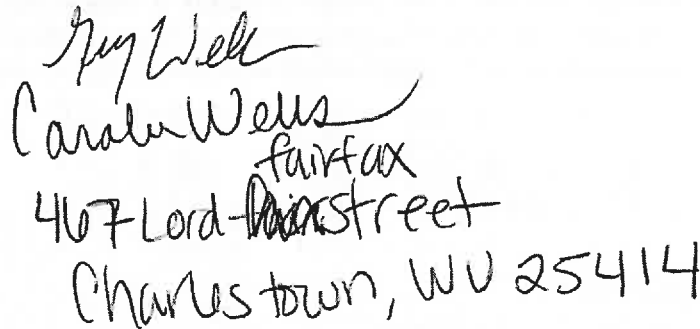 Wells
Wells
fairfax
467 Lord street
Charlestown, WV 25414